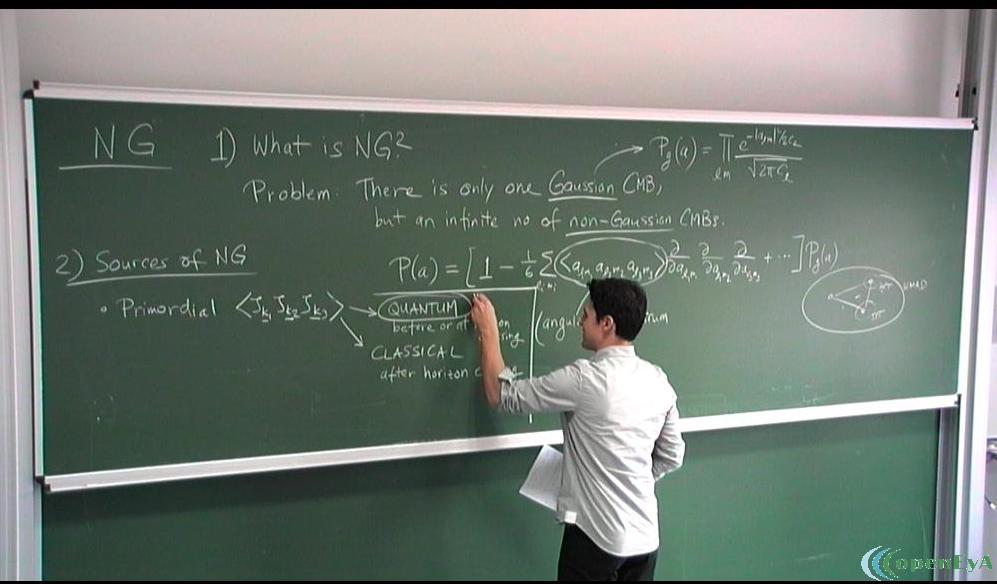 NG
1) What is NG?
P_g(a) = ∏_{lm} e^{-|a_{lm}|²/2C_l} / √(2πC_l)
Problem: There is only one Gaussian CMB,
but an infinite no of non-Gaussian CMBs.
2) Sources of NG
P(a) = [1 - 1/6 Σ_{l_i m_i} <a_{l_1m_1} a_{l_2m_2} a_{l_3m_3}> ∂/∂a_{l_1m_1} ∂/∂a_{l_2m_2} ∂/∂a_{l_3m_3} + ...] P_g(a)
• Primordial <ζ_{k1} ζ_{k2} ζ_{k3}>
QUANTUM
before or at
CLASSICAL
after horizon
(angul
WMAP
openEyA